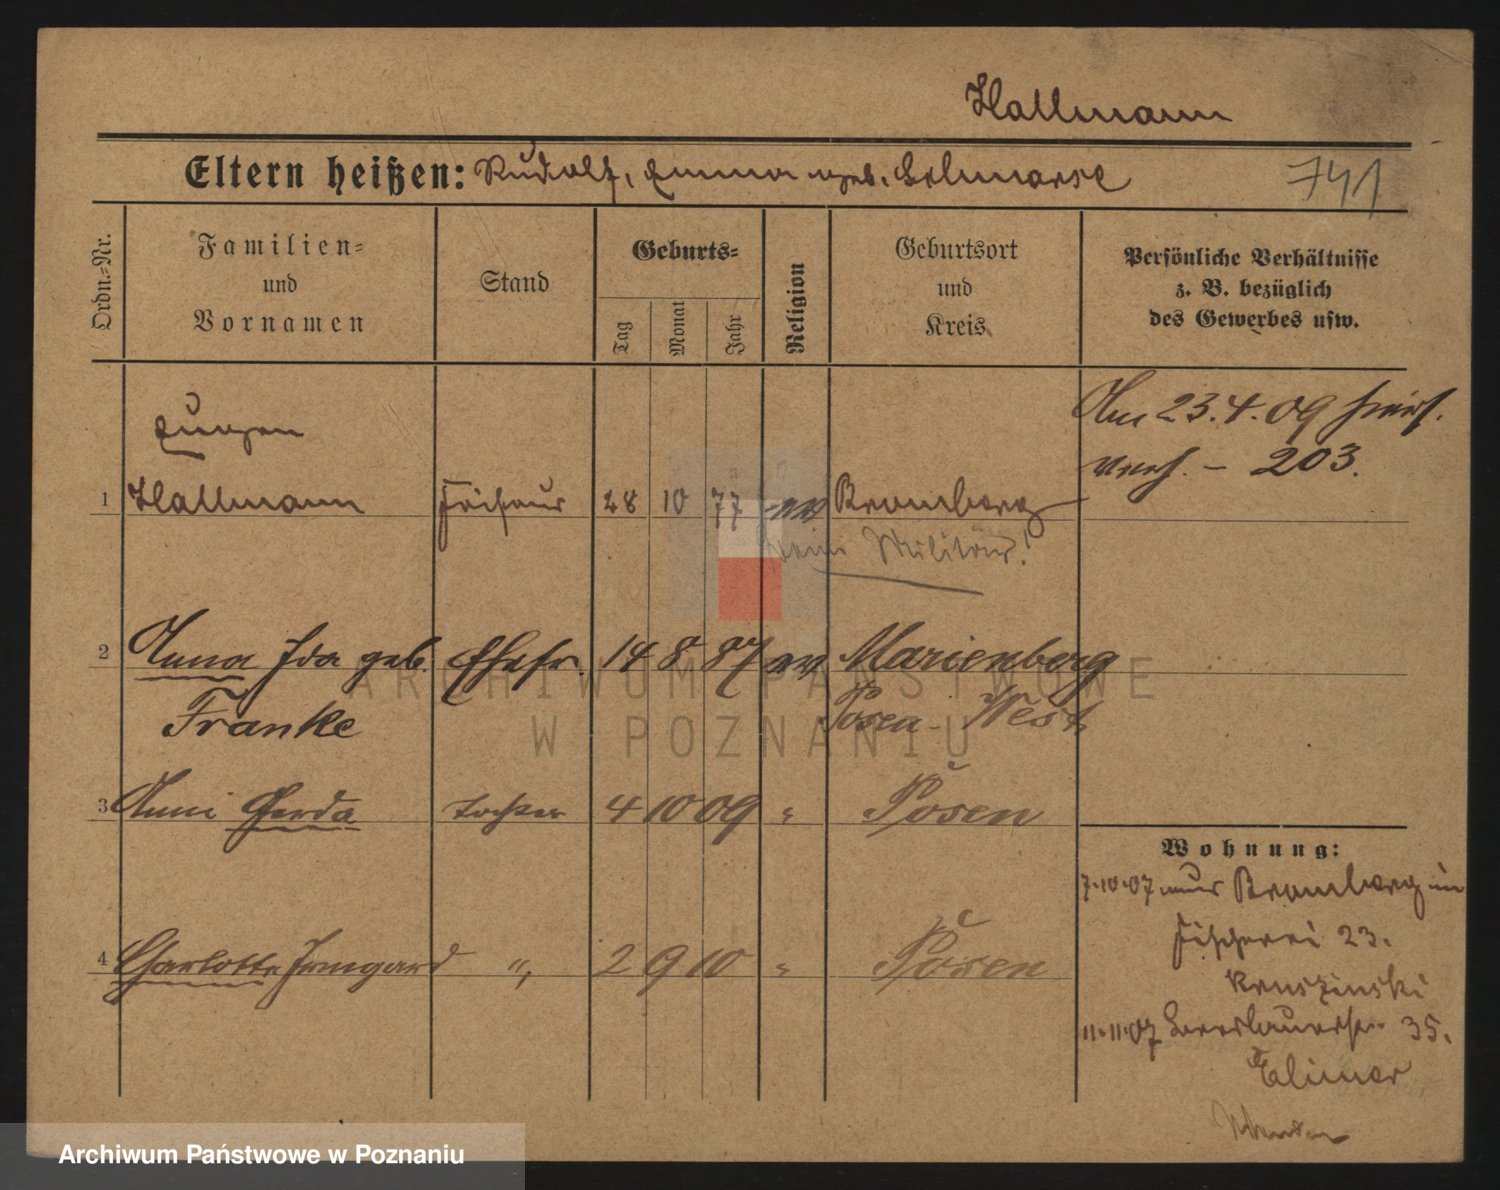 Hallmann
Eltern heißen: Rudolf, Emma geb.
741
Ordn.-Nr.
Familien-
und
Vornamen
Stand
Geburts-
Tag
Monat
Jahr
Religion
Geburtsort
und
Kreis
Persönliche Verhältnisse
z. B. bezüglich
des Gewerbes usw.
Am 23.4.09
verh. - 203.
Eugen
1 Hallmann Friseur 28 10 77 ev Bromberg
kein Militär!
2 Anna Ida geb. Ehefr. 14 8 87 ev Marienberg
Franke Posen-West
3 Anni Gerda Tochter 4 10 09 " Posen
Wohnung:
7.10.07 aus Bromberg in
Fischerei 23.
Kruszinski
4 Charlotte Irmgard " 2 9 10 " Posen
11.11.07 Breslauerstr. 35.
ARCHIWUM PAŃSTWOWE
W POZNANIU
Archiwum Państwowe w Poznaniu